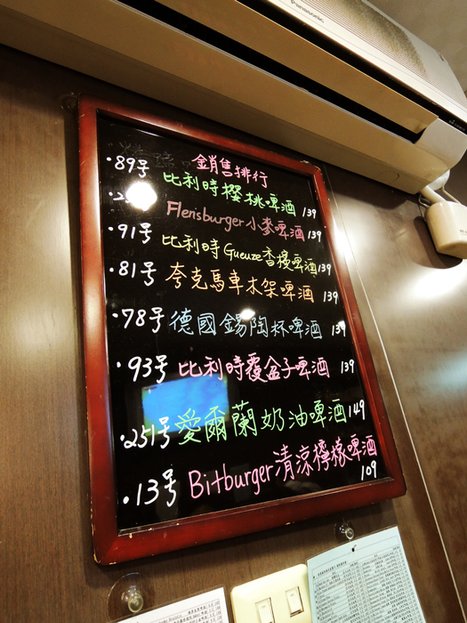 Panasonic
銷售排行
·89号 比利時櫻桃啤酒 139
Flensburger小麥啤酒 139
·91号 比利時Gueuze香檳啤酒 139
·81号 夸克馬車木架啤酒 139
·78号 德國錫陶杯啤酒 139
·93号 比利時覆盆子啤酒 139
·251号 愛爾蘭奶油啤酒 149
·13号 Bitburger清涼檸檬啤酒 109